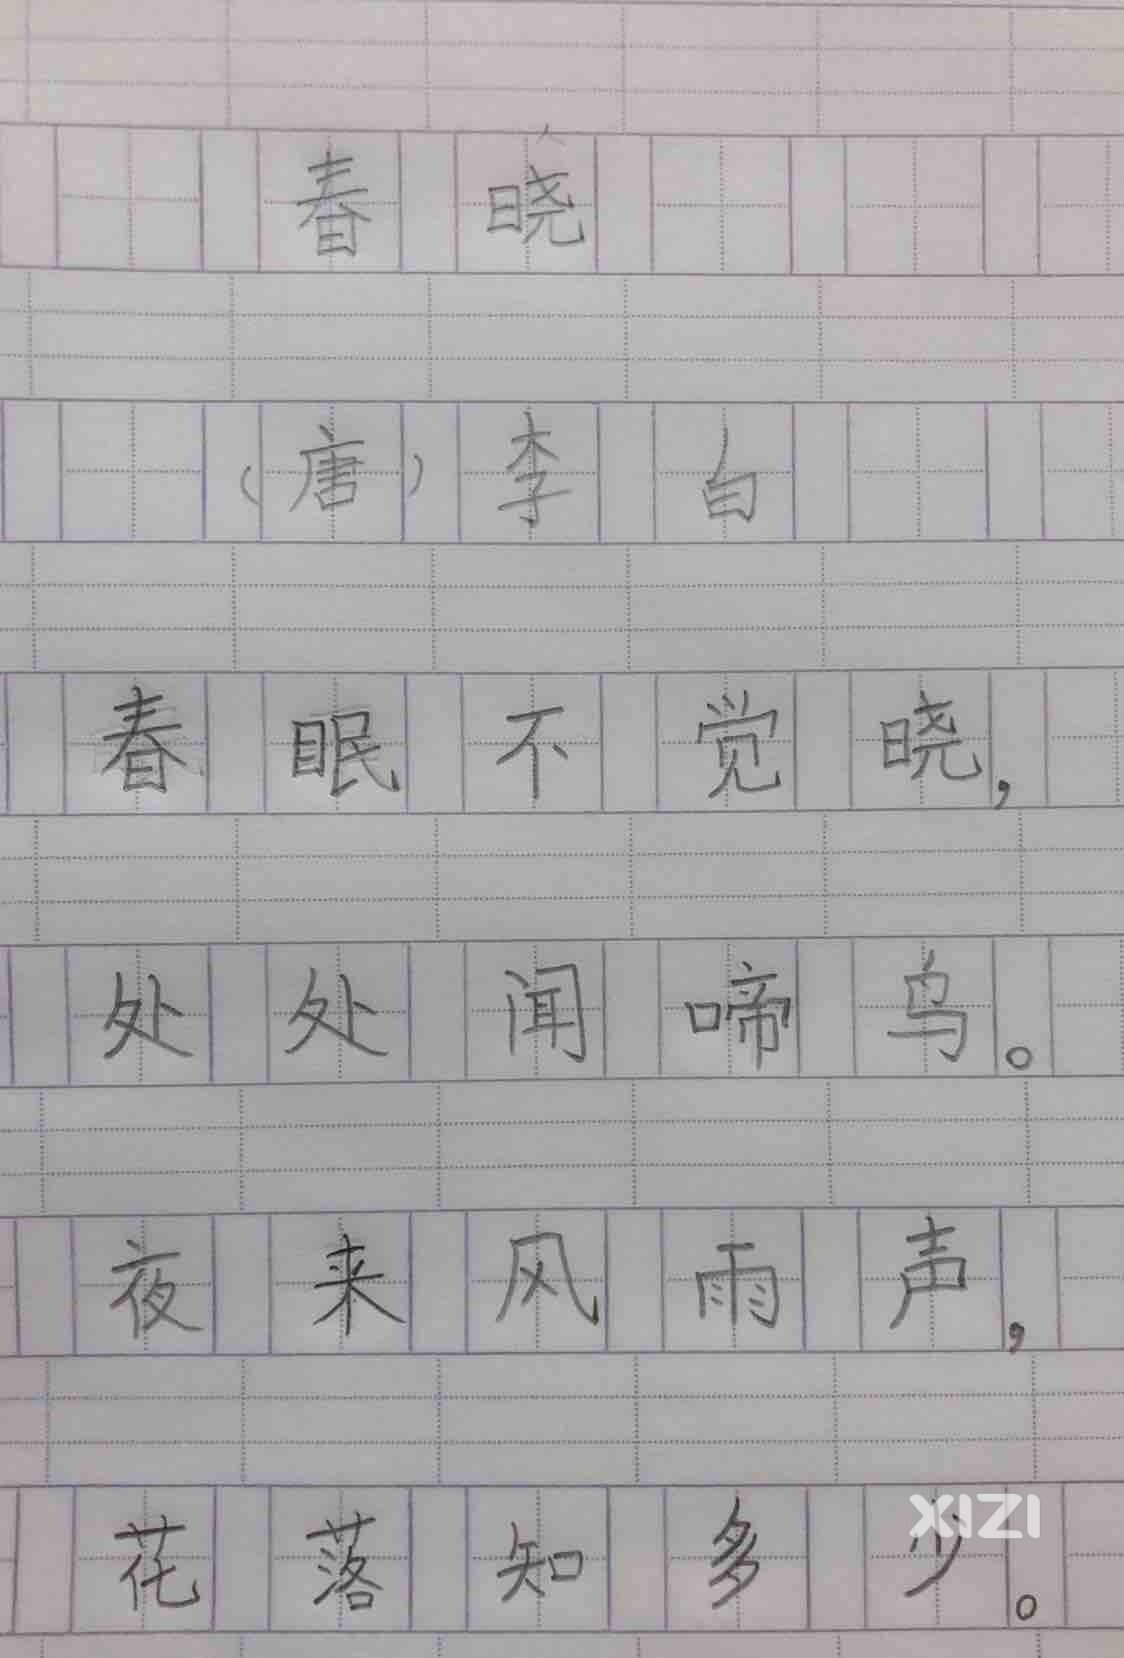 春晓
（唐）李白
春眠不觉晓，
处处闻啼鸟。
夜来风雨声，
花落知多少。
XIZI